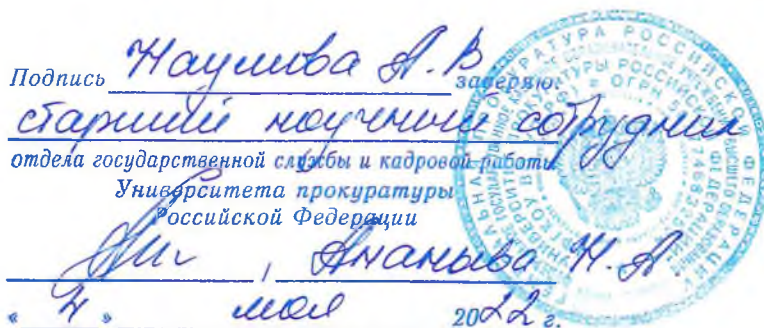 Подпись Наумова А.В заверяю:
старший научный сотрудник
отдела государственной службы и кадровой работы
Университета прокуратуры
Российской Федерации
, Ананьева Н.А.
« 4 » мая 2022 г.